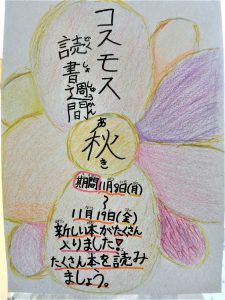 コスモス
読書週間
どくしょしゅうかん
秋
あき
期間 11月9日(月)
～
11月19日(金)
新しい本がたくさん
入りました!
たくさん本を読み
ましょう。